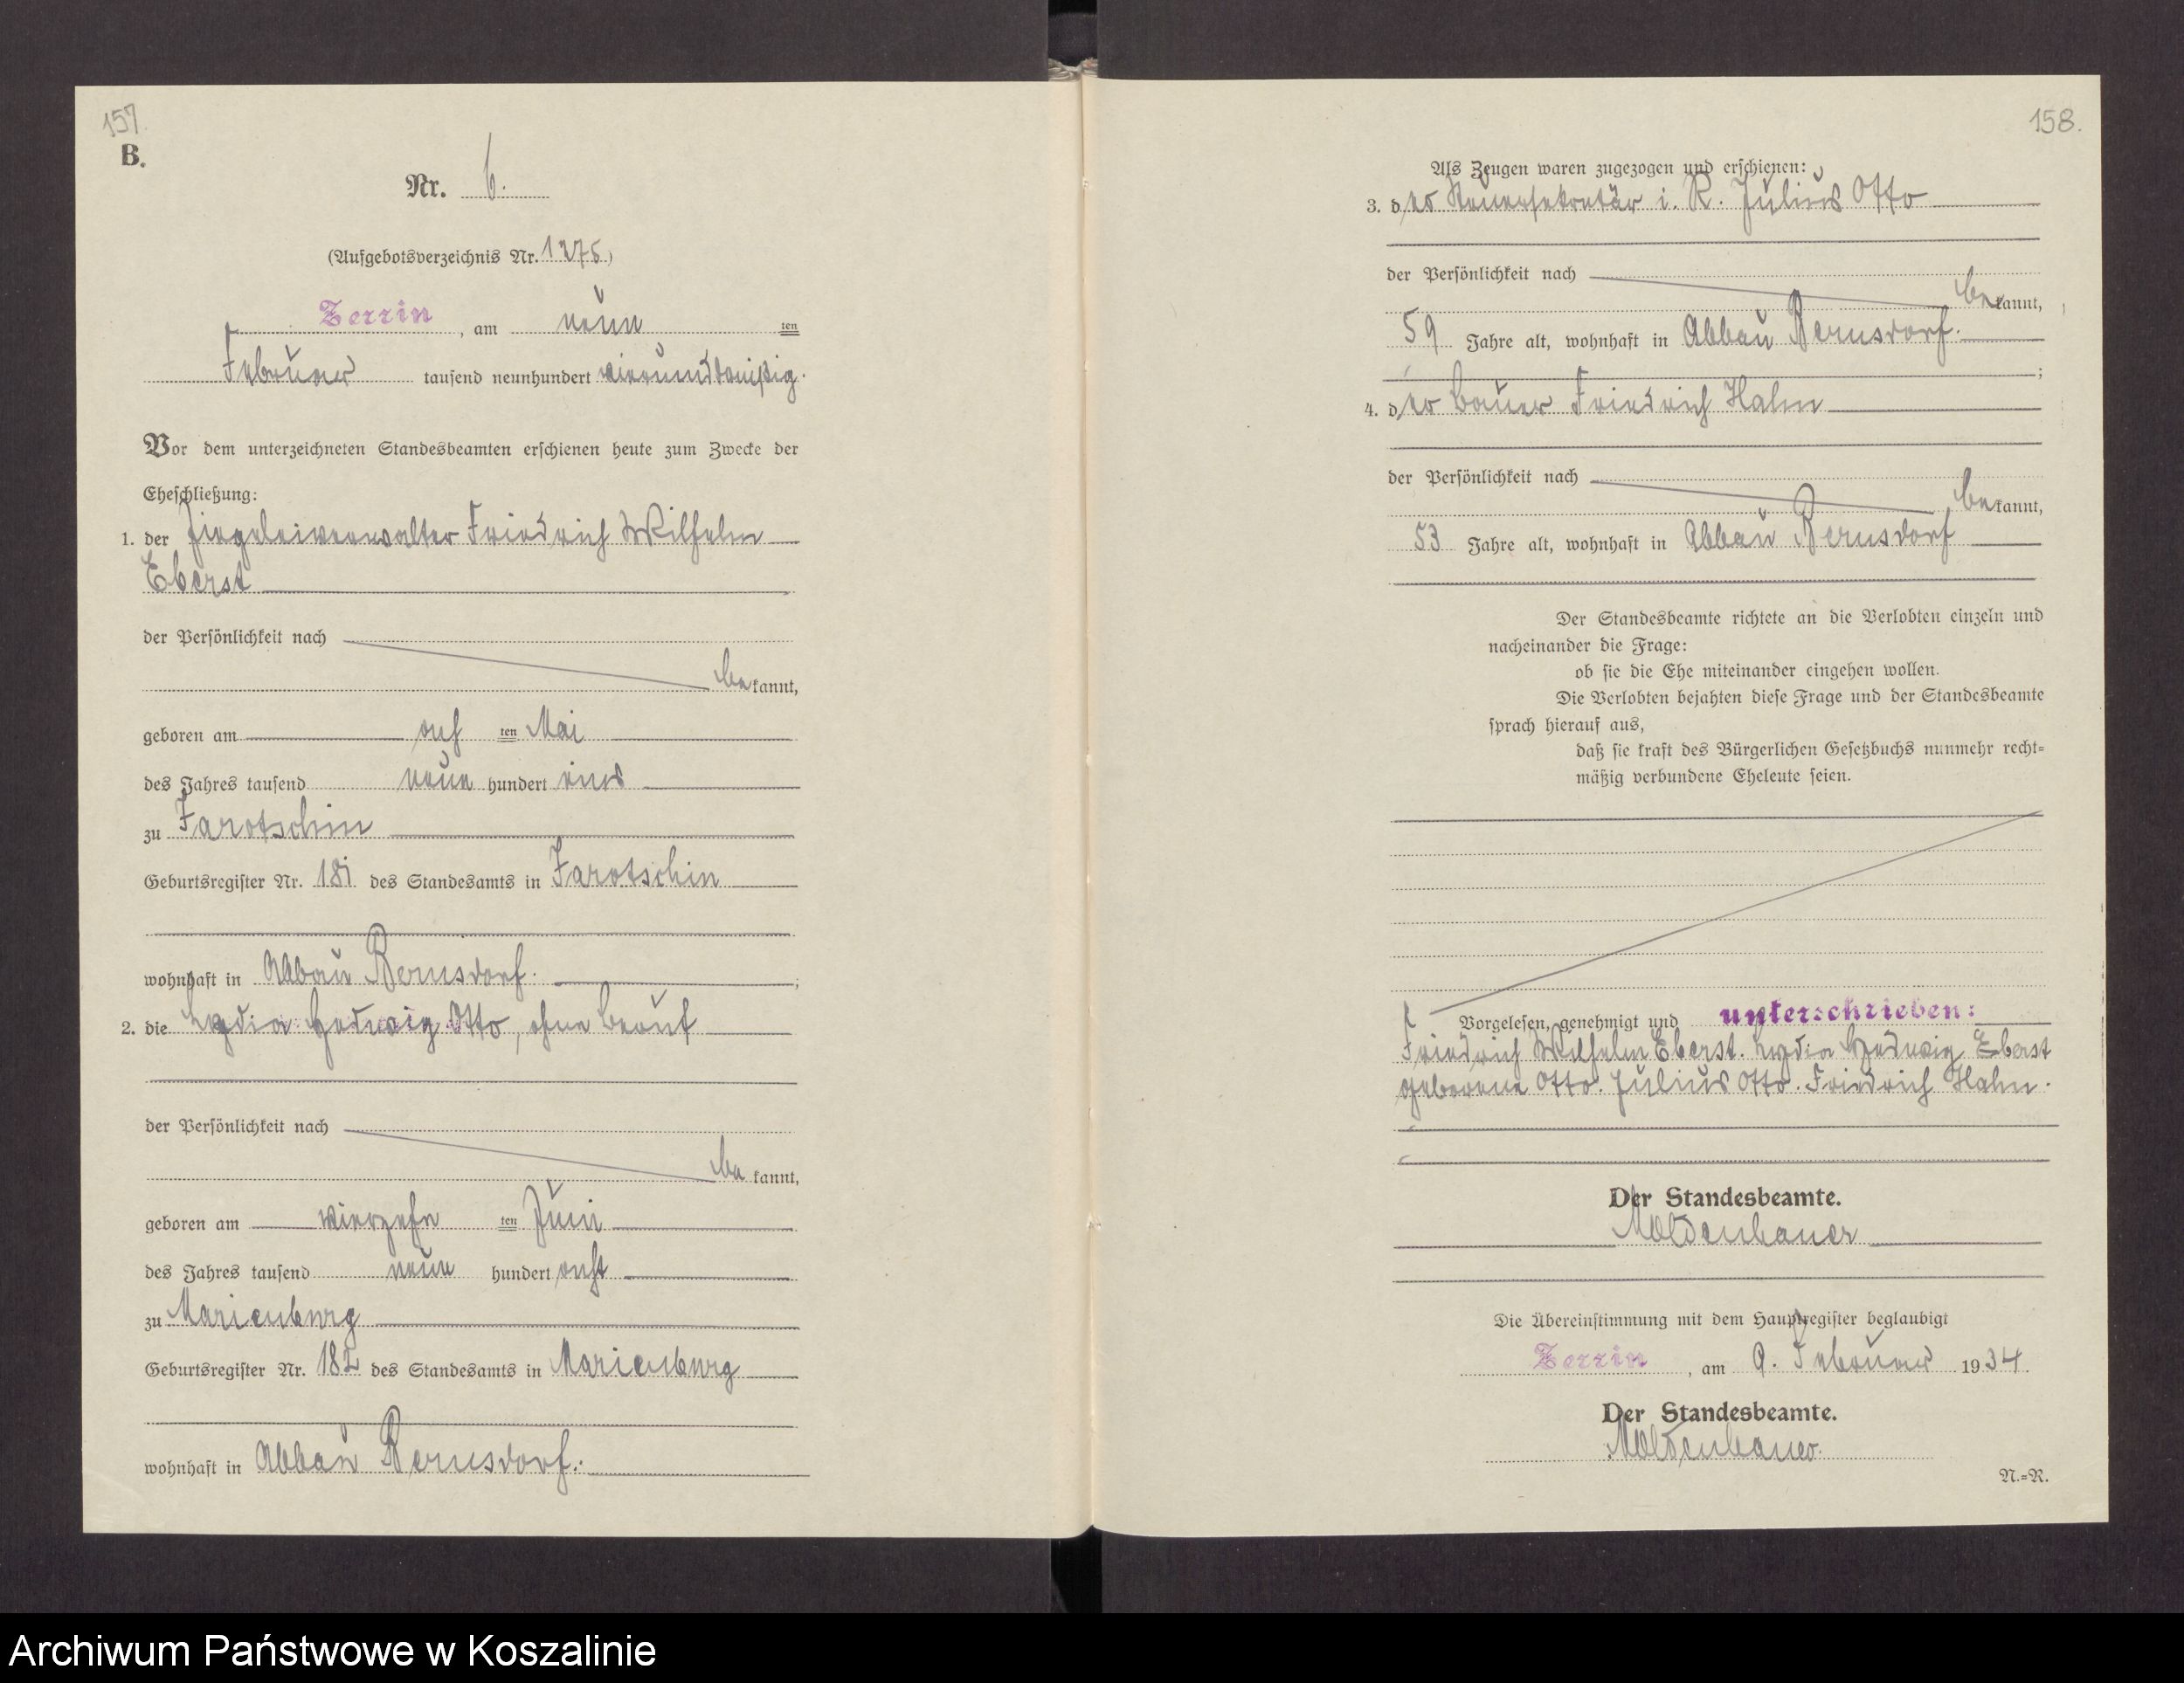 157.
B.
Nr. 6.
(Aufgebotsverzeichnis Nr. 1375.)
Zerrin, am neun ten
Februar tausend neunhundert vierunddreißig.
Vor dem unterzeichneten Standesbeamten erschienen heute zum Zwecke der
Eheschließung:
1. der Ziegeleiverwalter Friedrich Wilhelm
Eberst
der Persönlichkeit nach
be kannt,
geboren am ten Mai
des Jahres tausend neun hundert eins
zu Jarotschin
Geburtsregister Nr. 181 des Standesamts in Jarotschin
wohnhaft in Abbau Bernsdorf. ;
2. die Lydia Hedwig Otto, ohne Beruf
der Persönlichkeit nach
be kannt,
geboren am vierzehn ten Juni
des Jahres tausend neun hundert acht
zu Marienburg
Geburtsregister Nr. 182 des Standesamts in Marienburg
wohnhaft in Abbau Bernsdorf.
158.
Als Zeugen waren zugezogen und erschienen:
3. der Steuersekretär i. R. Julius Otto
der Persönlichkeit nach
be kannt,
59 Jahre alt, wohnhaft in Abbau Bernsdorf.
;
4. der Bauer Friedrich Hahn
der Persönlichkeit nach
be kannt,
53 Jahre alt, wohnhaft in Abbau Bernsdorf
Der Standesbeamte richtete an die Verlobten einzeln und
nacheinander die Frage:
ob sie die Ehe miteinander eingehen wollen.
Die Verlobten bejahten diese Frage und der Standesbeamte
sprach hierauf aus,
daß sie kraft des Bürgerlichen Gesetzbuchs nunmehr recht=
mäßig verbundene Eheleute seien.
Vorgelesen, genehmigt und unterschrieben:
Friedrich Wilhelm Eberst. Lydia Hedwig Eberst
geborene Otto. Julius Otto. Friedrich Hahn.
Der Standesbeamte.
Moldenhauer
Die Übereinstimmung mit dem Hauptregister beglaubigt
Zerrin, am 9. Februar 1934.
Der Standesbeamte.
Moldenhauer.
N.=R.
Archiwum Państwowe w Koszalinie